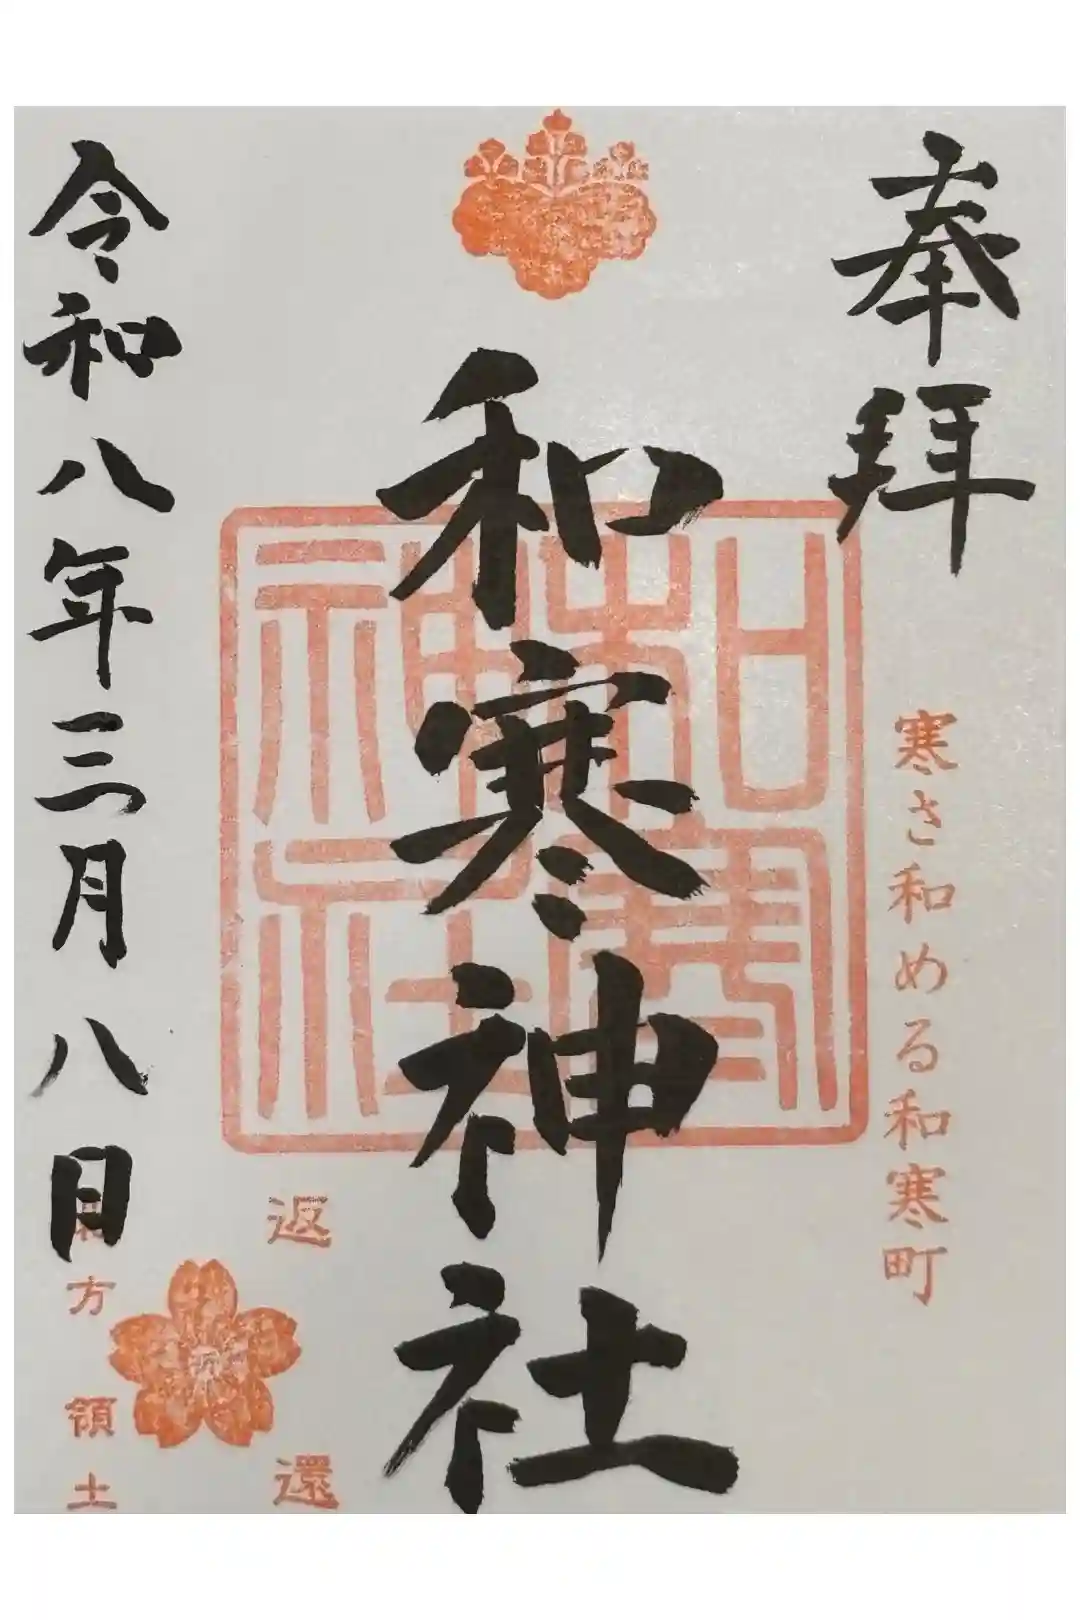 奉拝
寒さ和める和寒町
和寒神社
和寒神社
返還
北方領土
令和八年三月八日